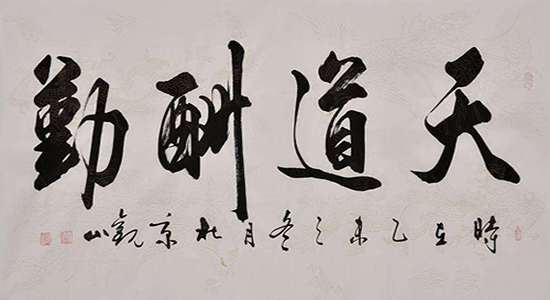 天道酬勤
時在乙未之冬月北京觀山